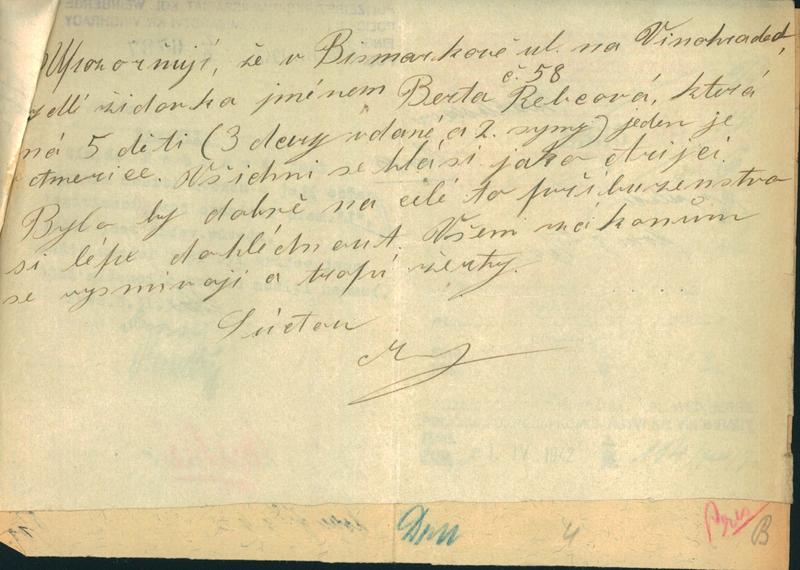 Upozorňuji, že v Bismarkově ul. na Vinohradech,
č. 58
dlí židovka jménem Berta Rebcová, která
má 5 dětí (3 dcery vdané a 2. syny) jeden je
Americe. Všichni se hlásí jako
Bylo by dobře na celé to příbuzenstvo
si lépe dohlédnout. Všem zákonům
se vysmívají a tropí žerty.
S úctou
Dru
4
B